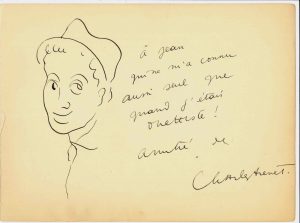 à Jean
qui ne m'a connu
aussi seul que
quand j'étais
duettiste !
amitié. de
Charles Trenet.